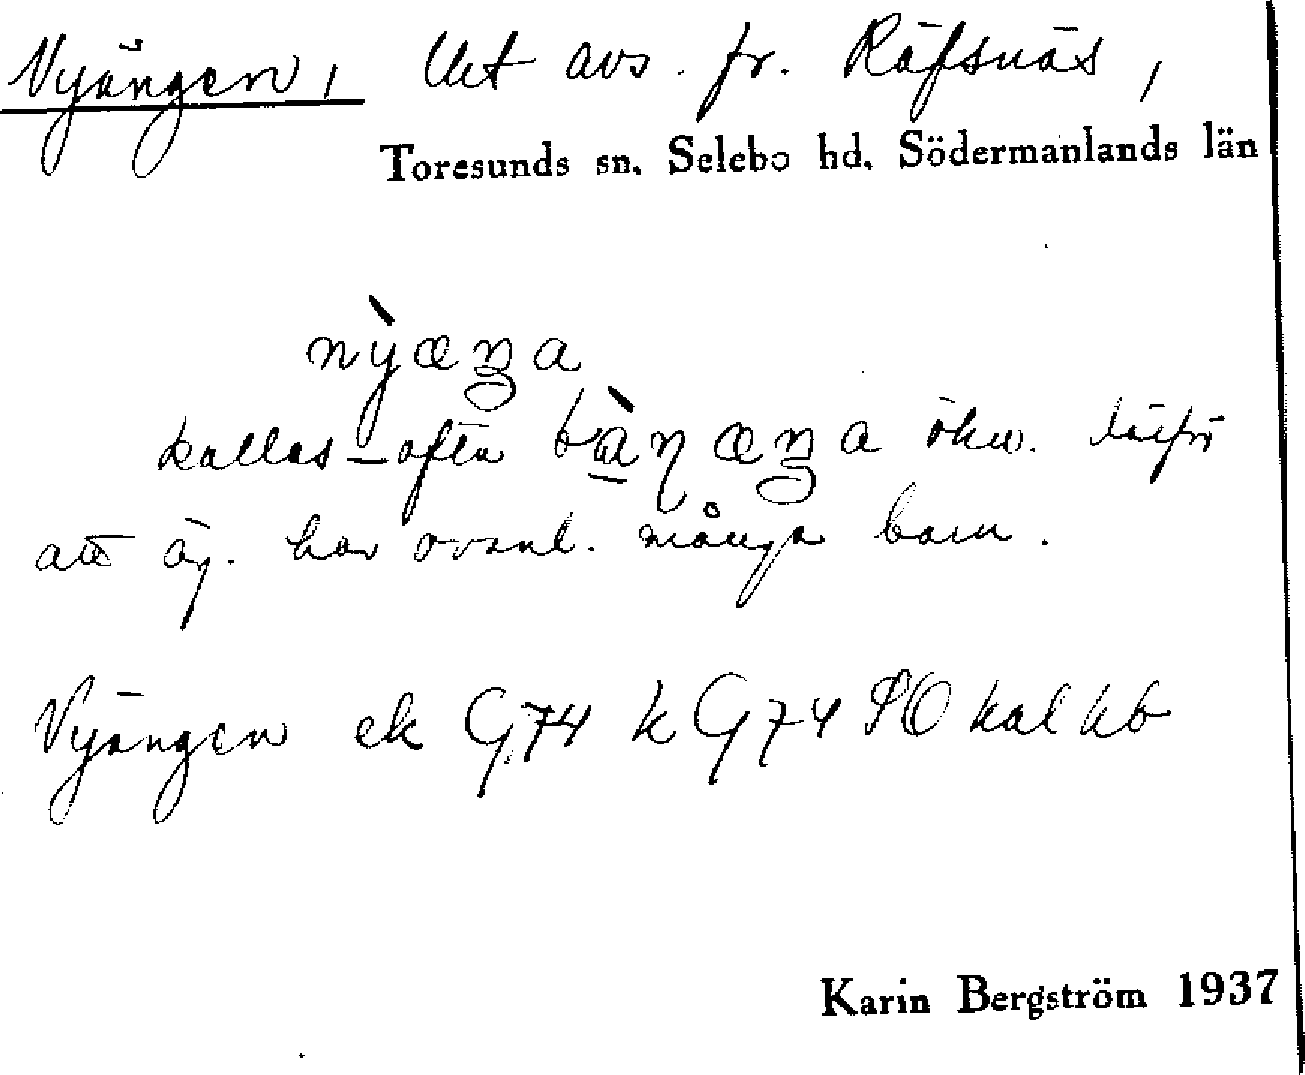 Nyängen, Utt avs. fr. Räfsnäs,
Toresunds sn. Selebo hd. Södermanlands län
nỳæŋa
kallas ofta bàɳæŋa ökn. därför
att äg. har ovanl. många barn.
Nyängen ek G74 k G74 PO kal kb
Karin Bergström 1937